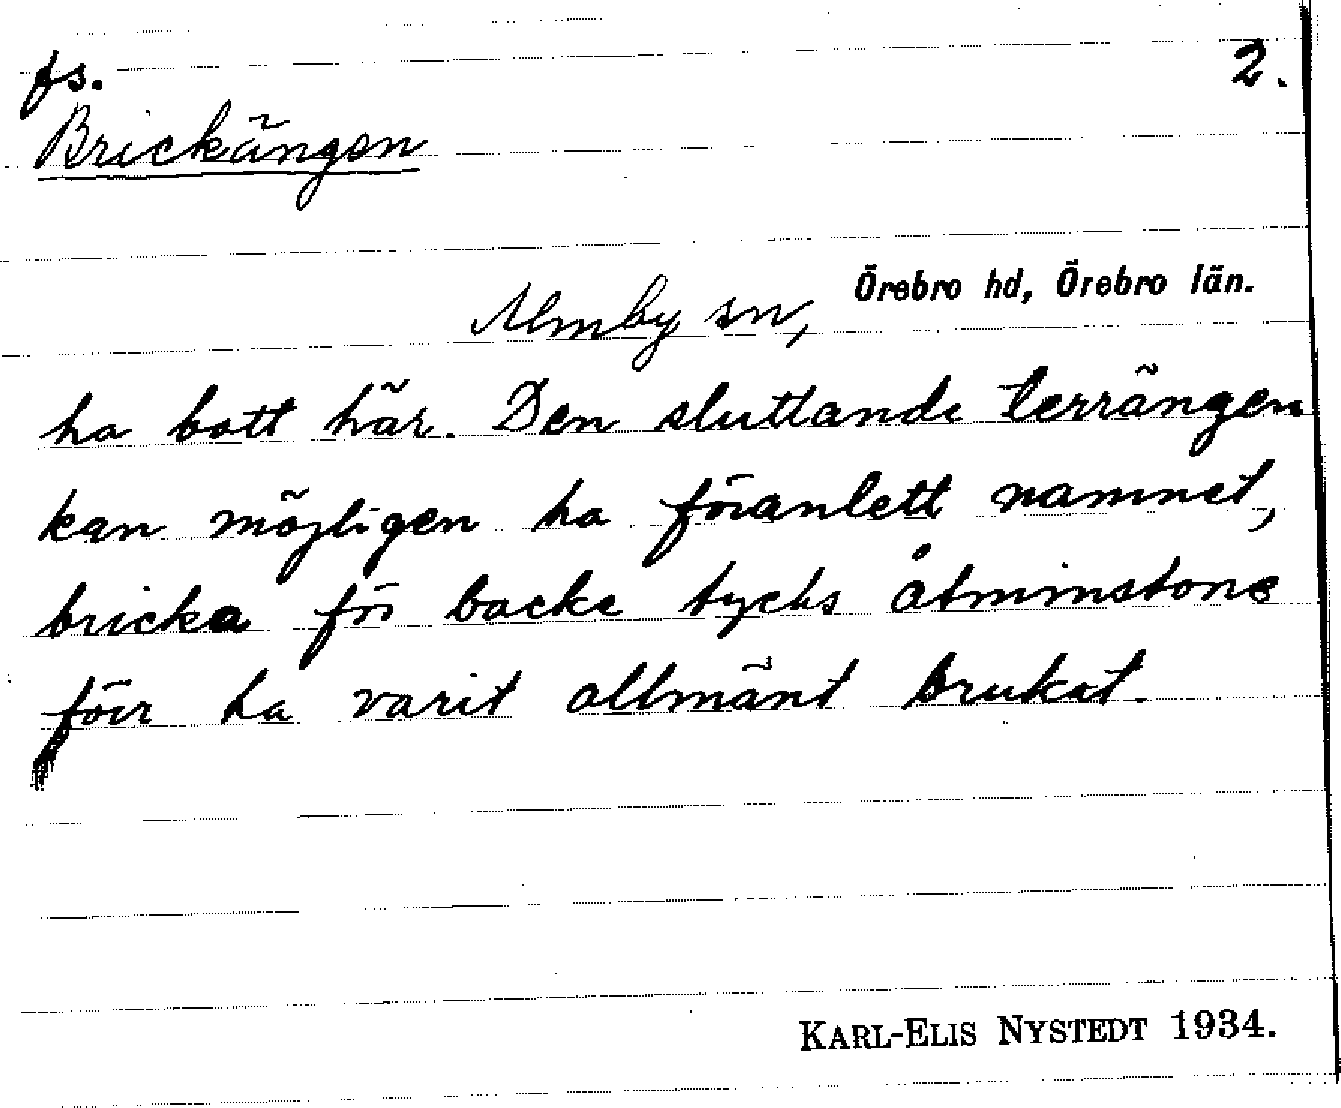 fs. 2.
Brickängen
Almby sn, Örebro hd, Örebro län.
ha bott här. Den sluttande terrängen
kan möjligen ha föranlett namnet,
bricka för backe tycks åtminstone
förr ha varit allmänt brukat.
KARL-ELIS NYSTEDT 1934.